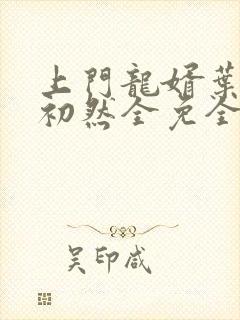 上門龍婿葉
初然全免全
吴印咸